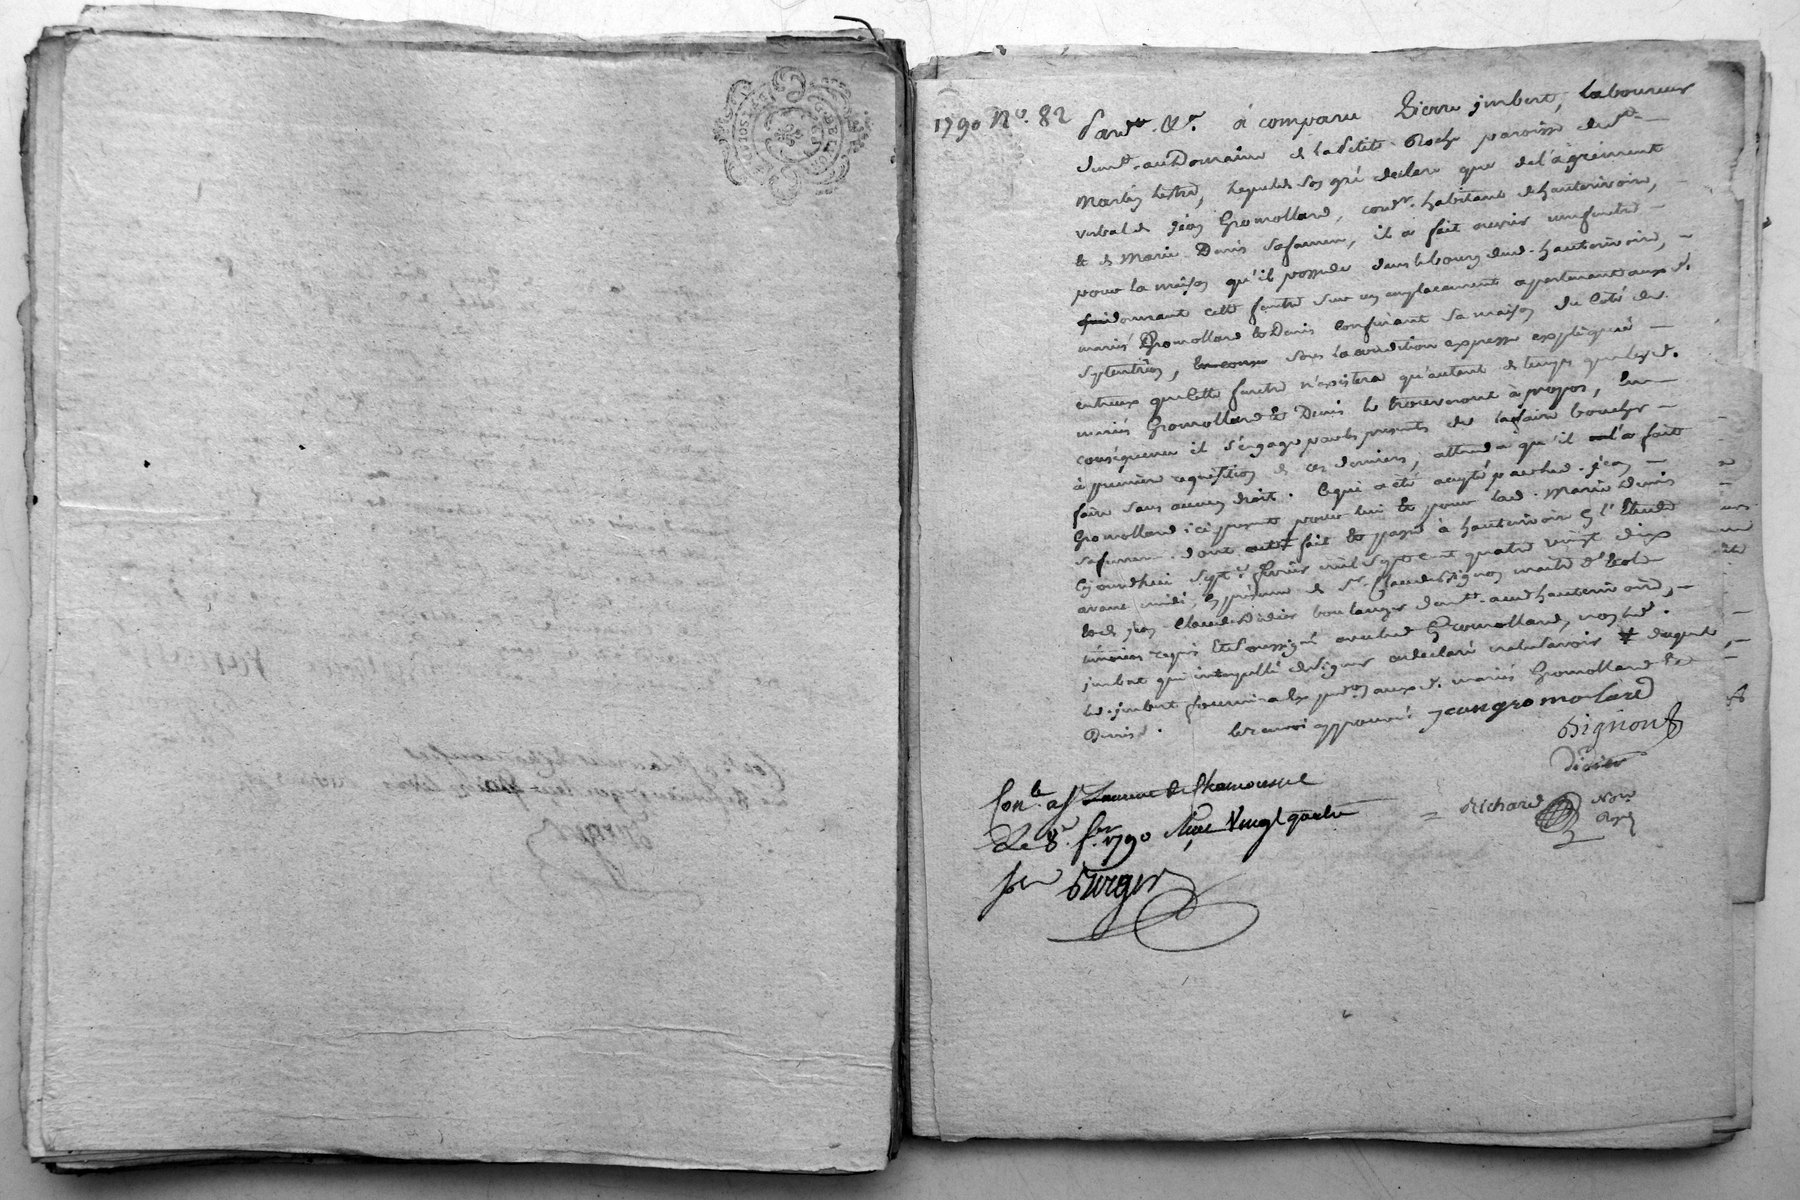 1790 N.º 82
Pardt. &ª. à comparu Pierre jmbert, laboureur
demt. au Domaine de la Petite Roche paroisse de St.
Martin Lestra, lequel de son gré declare que de l'agrément
verbal de jean Gromollard, cordr. habitant de hauterivoire,
& de Marie Denis sa femme, il a fait ouvrir une fenetre
pour la maison qu'il possede dans le bourg dud. hauterivoire,
donnant cette fenetre sur un emplacement appartenant aux d.
mariés Gromollard & Denis confinant sa maison du coté de
septentrion, sous la condition expresse expliquée
entreux que cette fenetre n'existera qu'autant de temps que lesd.
mariés Gromollard & Denis le trouveront à propos, En
consequence il s'engage par les presentes de la faire boucher
à premiere requisition de ces derniers, attendu qu'il l'a fait
faire sans aucun droit. Ce qui a été accepté par led. jean
Gromollard ici present pour lui & pour lad. Marie Denis
sa femme. dont acte fait & passé à hauterivoire En l'Etude
Cejourdhui sept.e fevrier mil sept cent quatre vingt dix
avant midi, En presence de Sr. Claude Bignon maitre d'Ecole
& de jean Claude Didier boulanger demtt. aud hauterivoire,
témoins requis & soussignés avec led Gromollard, non led.
jmbert qui interpellé de signer a declaré ne le savoir # desquelles
led. jmbert fournira Exped.on aux d. mariés Gromollard &
Denis. le renvoi approuvé jean gromolard
Bignon
Didier
Richard Nore
Royal
Conlé. a St Laurent de Chamousset
Le 8. fer. 1790 Reçu Vingt quatre
sols Burger